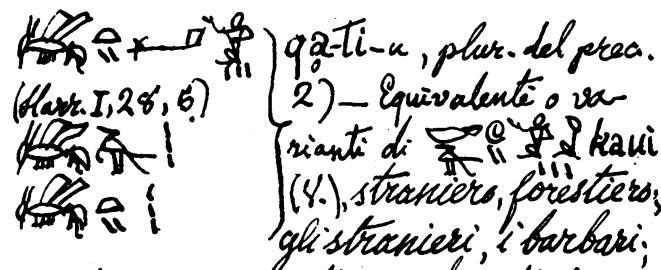 qa-ti-u, plur. del prec.
(Harr. I, 28, 5.) 2) — Equivalenti o va-
rianti di kaui
(V.), straniero, forestiero;
gli stranieri, i barbari;